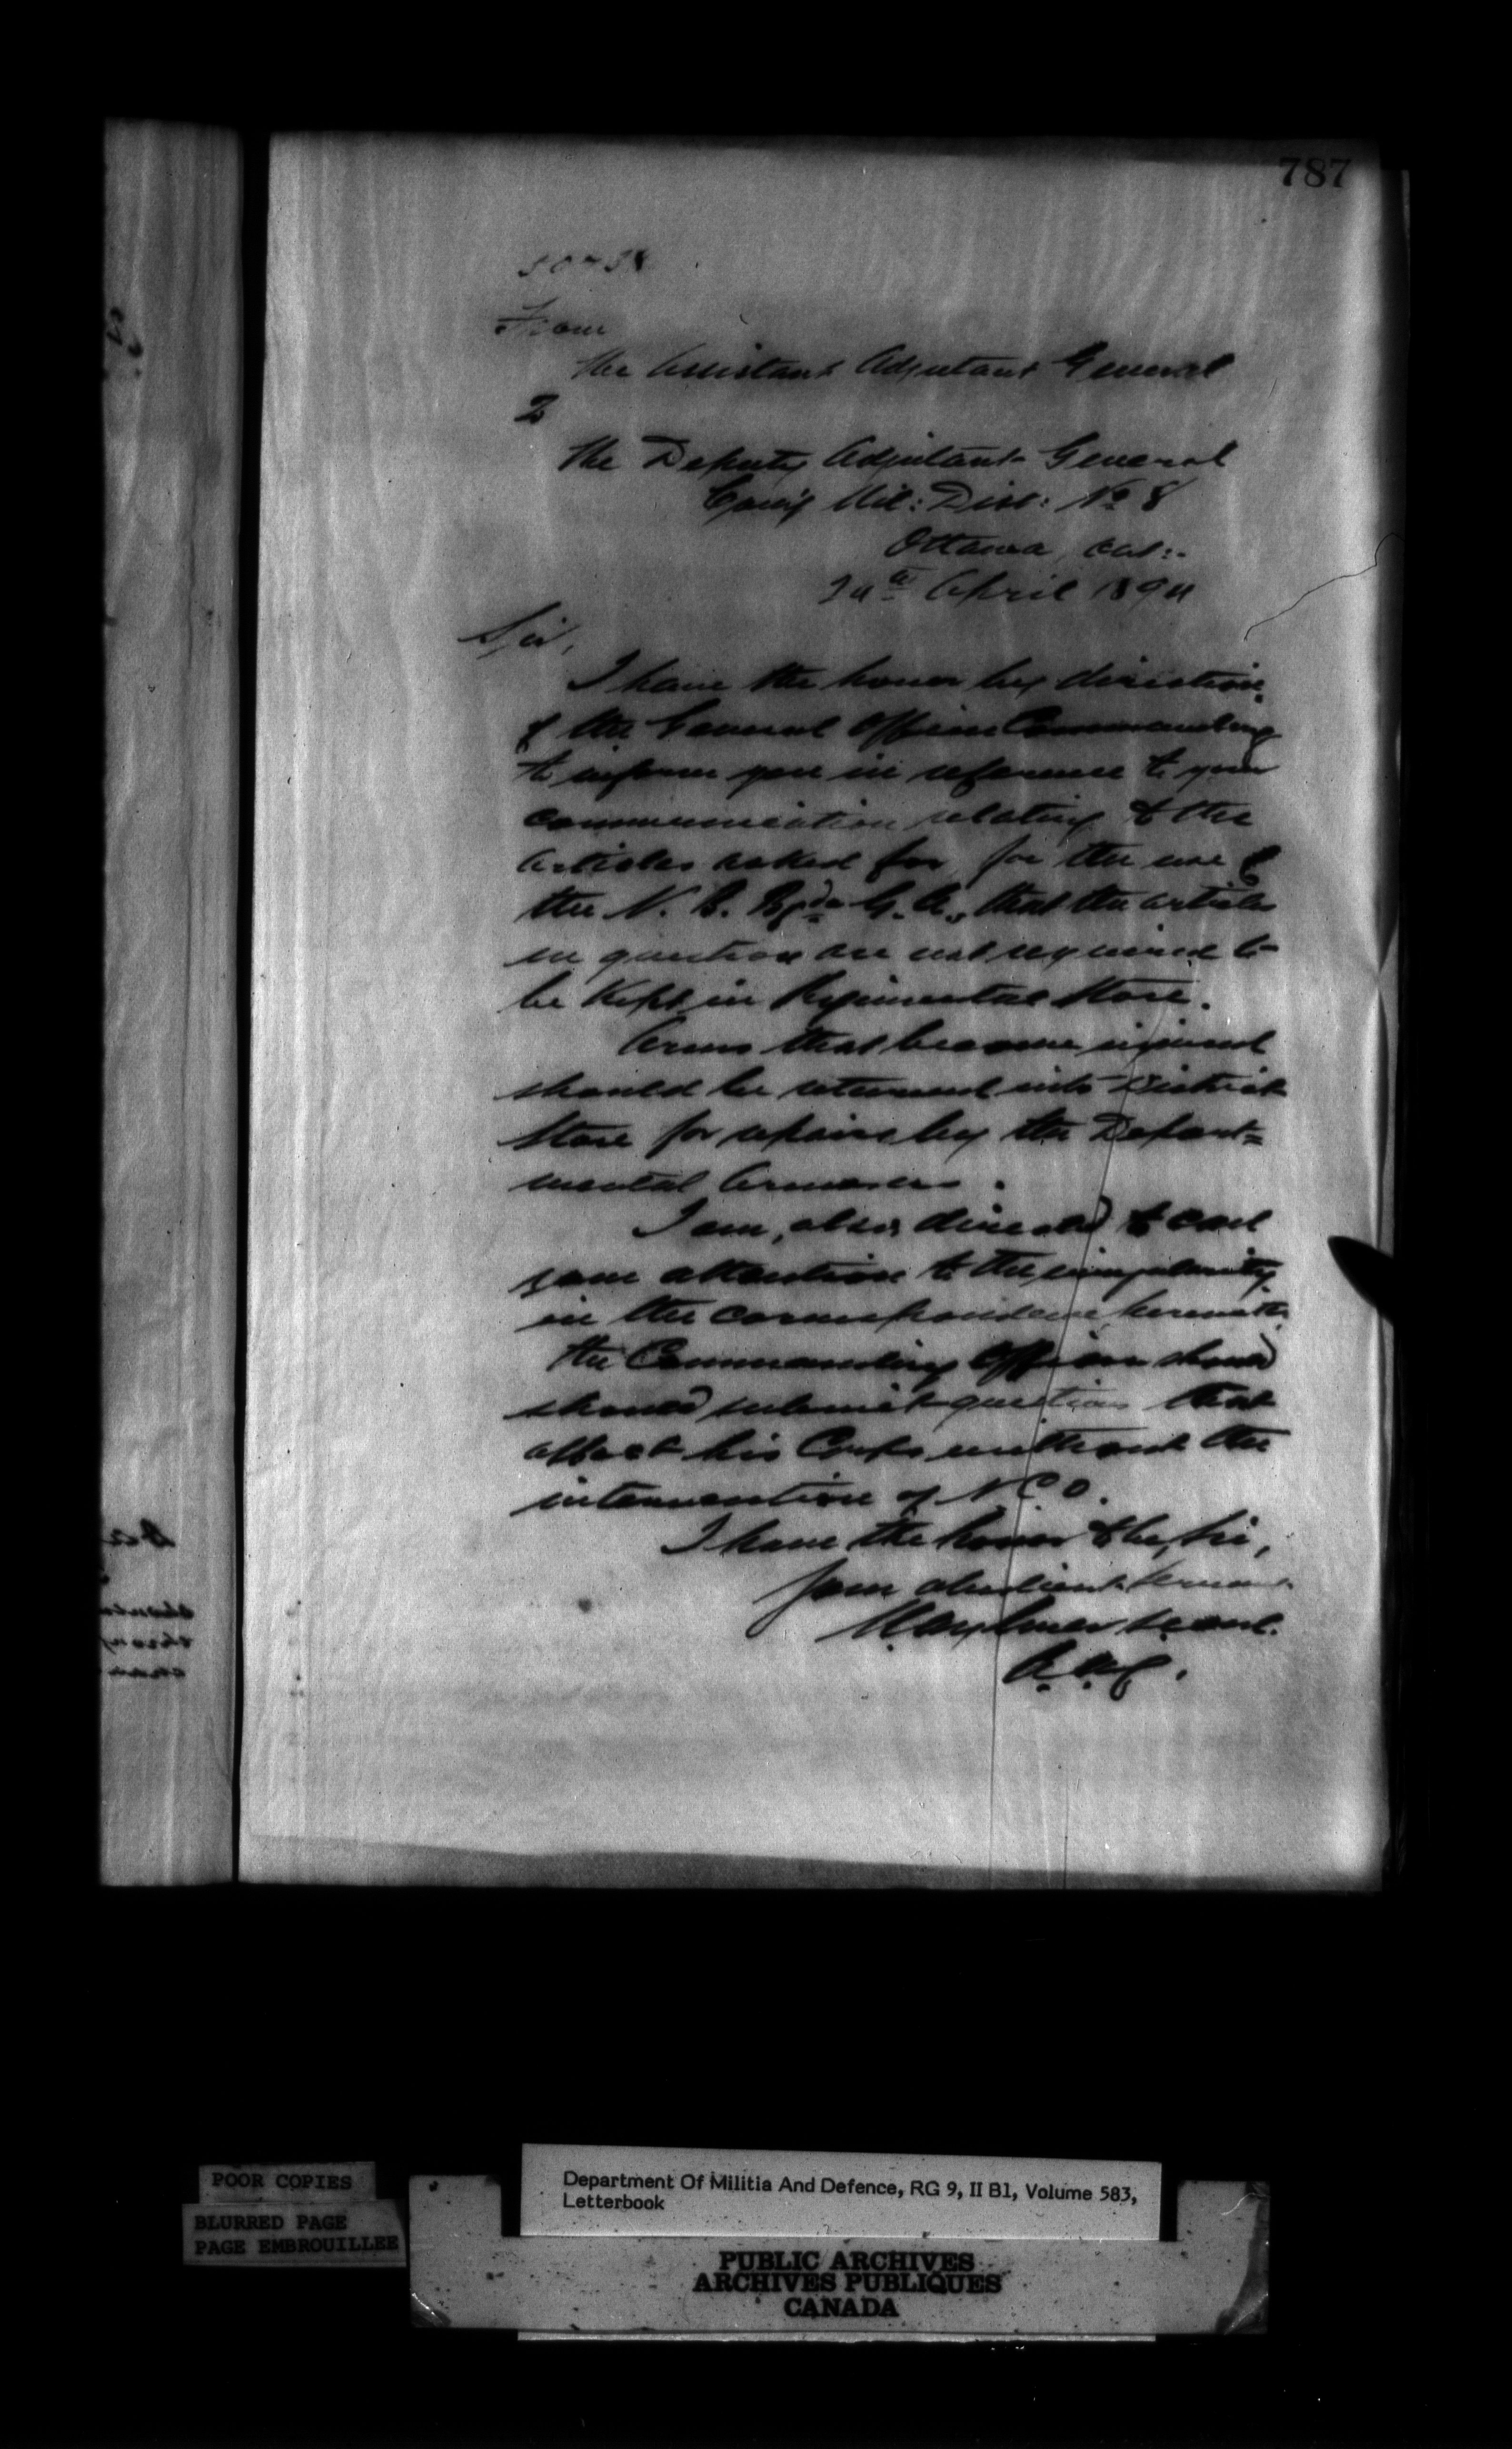 787
From
the Assistant Adjutant General
To
the Deputy Adjutant General
Com'g Mil: Dist: No 8
Ottawa, Ont:.
April 1894
Sir,
I have the honor by direction
of the General Officer Commanding
to inform you in reference to your
communication relating to the
articles asked for, for the use of
the N. B. Bgde G. A., that the articles
in question are not required to
be kept in Regimental Store.
Arms that become injured
should be returned into District
Store for repairs by the Depart=
mental Armorers.
I am, also, directed to call
your attention to the irregularity
in the correspondence herewith
the Commanding Officer should
should submit questions that
affect his Corps without the
intervention of N C O.
I have the honor to be, Sir,
Your obedient Servant
Aylmer Lt Col.
A.A.G.
POOR COPIES
BLURRED PAGE
PAGE EMBROUILLEE
Department Of Militia And Defence, RG 9, II B1, Volume 583,
Letterbook
PUBLIC ARCHIVES
ARCHIVES PUBLIQUES
CANADA